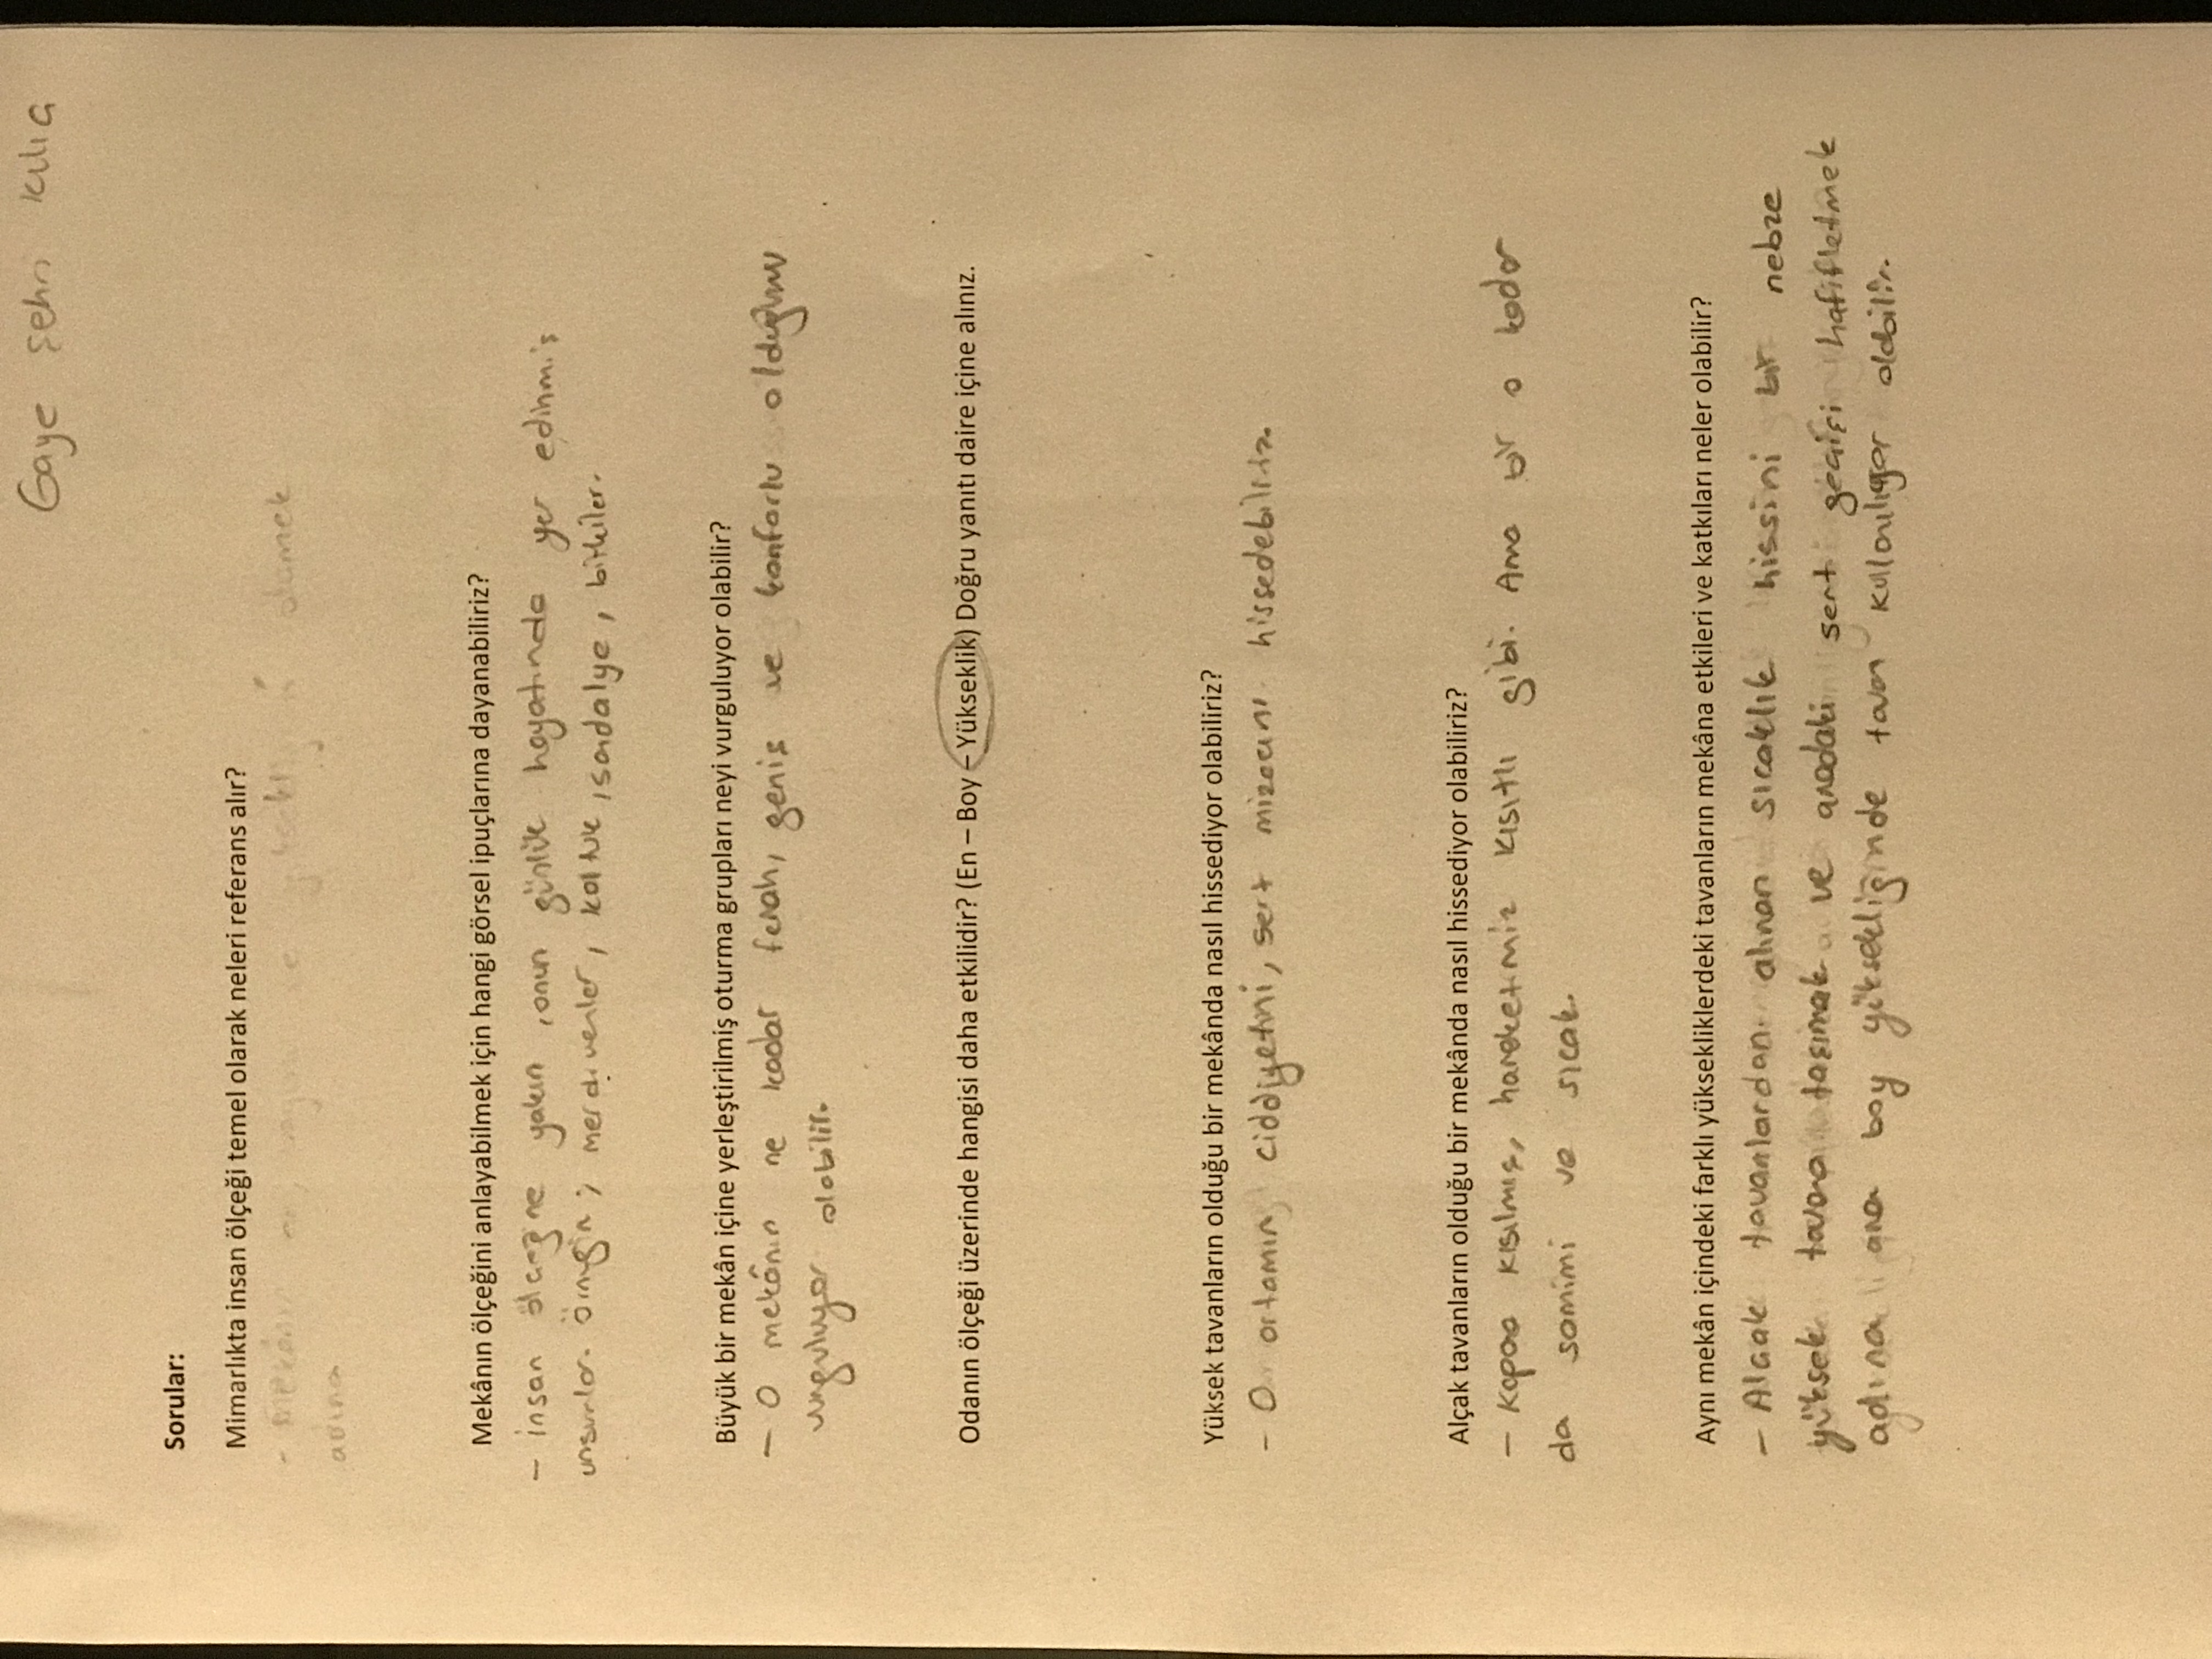 Gaye Şehri Kılıç
Sorular:
Mimarlıkta insan ölçeği temel olarak neleri referans alır?
-
adına
Mekânın ölçeğini anlayabilmek için hangi görsel ipuçlarına dayanabiliriz?
- insan ölçeğine yakın, onun günlük hayatında yer edinmiş
unsurlar. Örneğin; merdivenler, koltuk, sandalye, bitkiler.
Büyük bir mekân içine yerleştirilmiş oturma grupları neyi vurguluyor olabilir?
- O mekânın ne kadar ferah, geniş ve konforlu olduğunu
vurguluyor olabilir.
Odanın ölçeği üzerinde hangisi daha etkilidir? (En – Boy – Yükseklik) Doğru yanıtı daire içine alınız.
Yüksek tavanların olduğu bir mekânda nasıl hissediyor olabiliriz?
- O ortamın ciddiyetini, sert mizacını hissedebiliriz.
Alçak tavanların olduğu bir mekânda nasıl hissediyor olabiliriz?
- Kapana kısılmış, hareketimiz kısıtlı gibi. Ama bir o kadar
da samimi ve sıcak.
Aynı mekân içindeki farklı yüksekliklerdeki tavanların mekâna etkileri ve katkıları neler olabilir?
- Alçak tavanlardan alınan sıcaklık hissini bir nebze
yüksek tavana taşımak ve aradaki sert geçişi hafifletmek
adına ara boy yüksekliğinde tavan kullanılıyor olabilir.